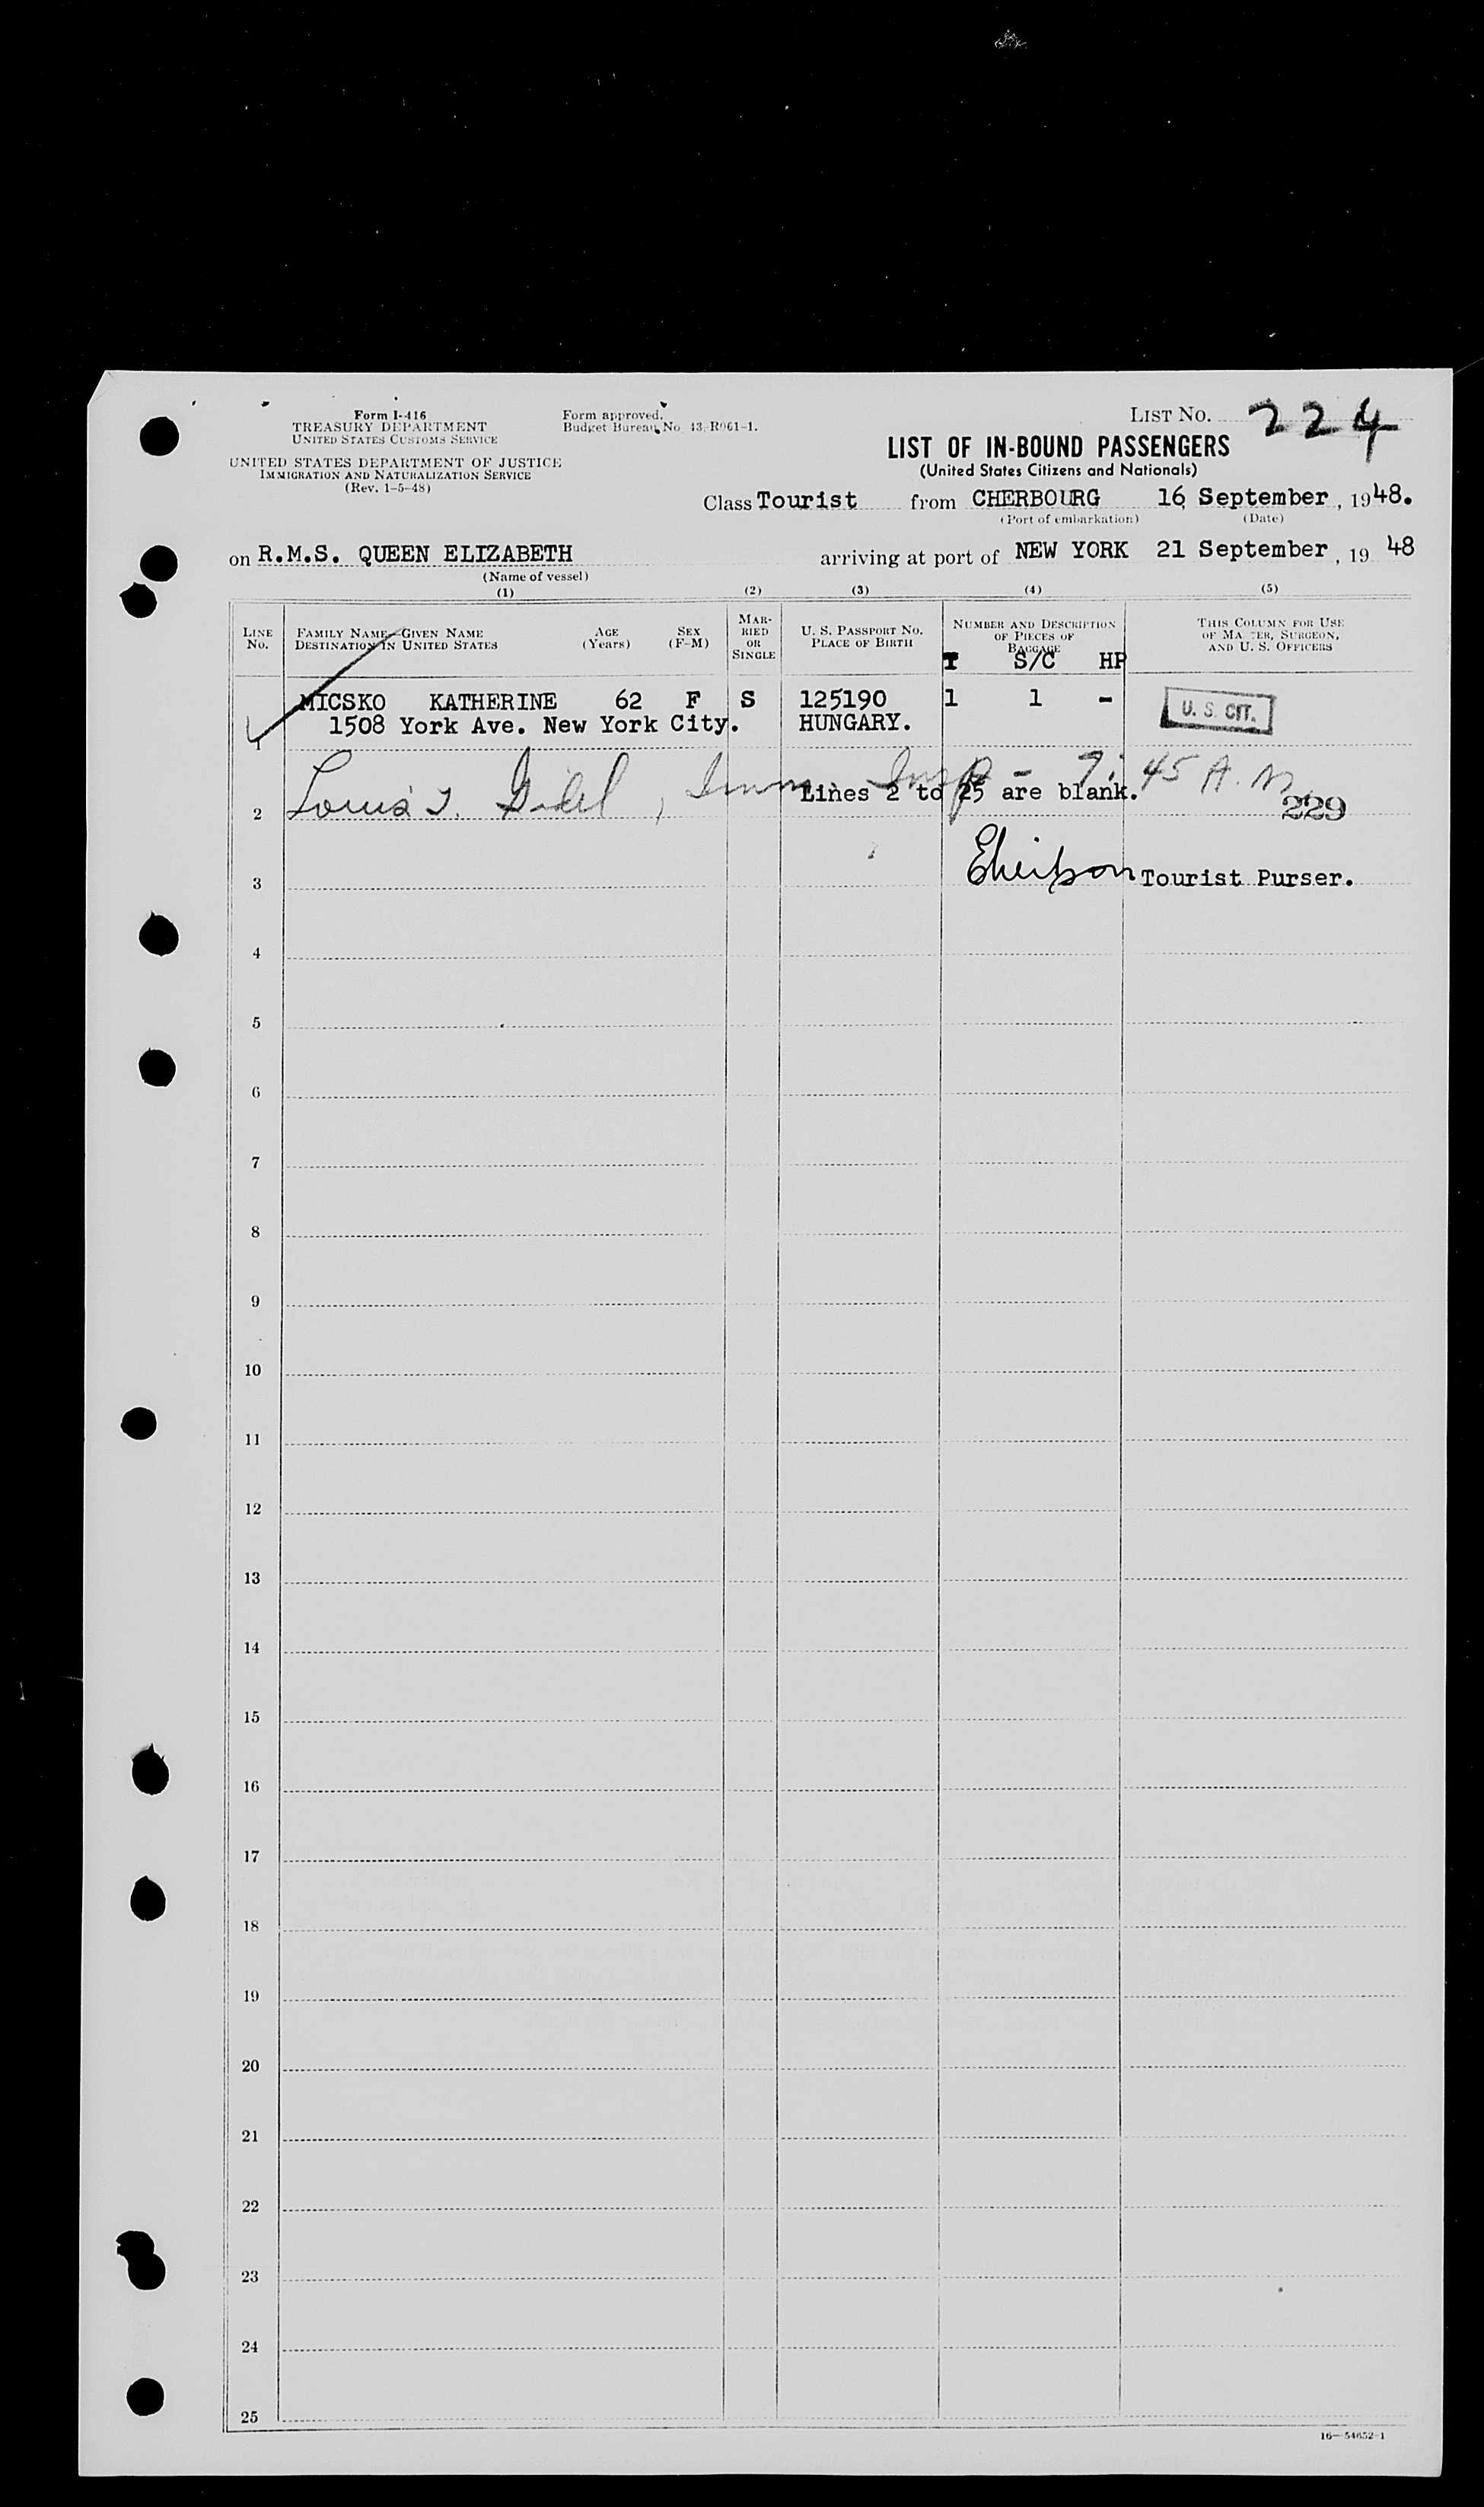 Form I-416
TREASURY DEPARTMENT
UNITED STATES CUSTOMS SERVICE
UNITED STATES DEPARTMENT OF JUSTICE
IMMIGRATION AND NATURALIZATION SERVICE
(Rev. 1-5-48)
Form approved.
Budget Bureau No. 43-R061-1.
LIST NO. 224
LIST OF IN-BOUND PASSENGERS
(United States Citizens and Nationals)
Class Tourist from CHERBOURG 16 September, 1948.
(Port of embarkation) (Date)
on R.M.S. QUEEN ELIZABETH arriving at port of NEW YORK 21 September, 19 48
(Name of vessel)
(1) (2) (3) (4) (5)
LINE NO.
FAMILY NAME—GIVEN NAME
DESTINATION IN UNITED STATES
AGE
(Years)
SEX
(F-M)
MAR-
RIED
OR
SINGLE
U. S. PASSPORT NO.
PLACE OF BIRTH
NUMBER AND DESCRIPTION
OF PIECES OF
BAGGAGE
T S/C HP
THIS COLUMN FOR USE
OF MASTER, SURGEON,
AND U. S. OFFICERS
1 MICSKO KATHERINE 62 F S 125190 1 1 -
1508 York Ave. New York City. HUNGARY.
U. S. CIT.
Louis Imm Insp - 9:45 A.M.
2 Lines 2 to 25 are blank.
229
3 Tourist Purser.
4
5
6
7
8
9
10
11
12
13
14
15
16
17
18
19
20
21
22
23
24
25
16—54652-1